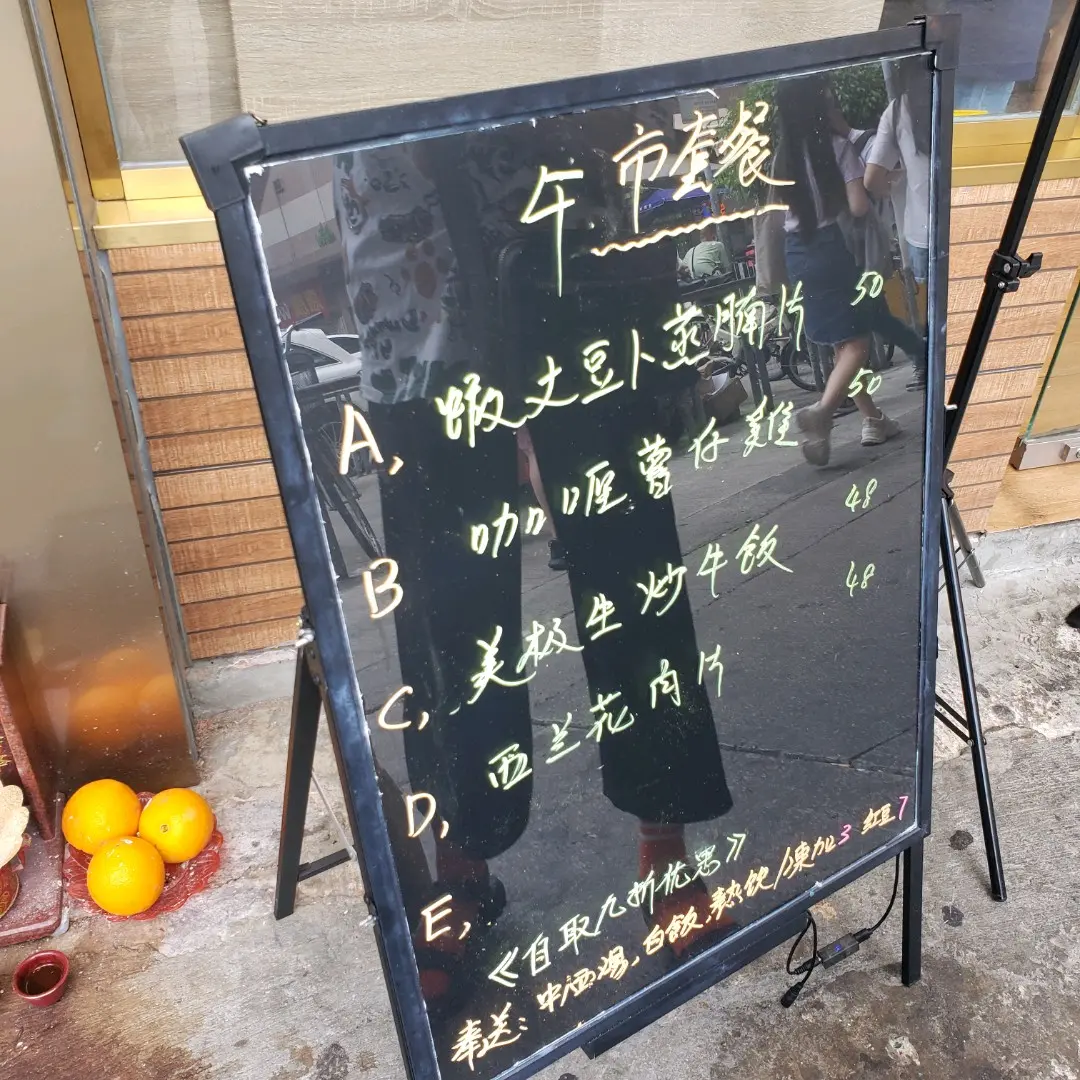 午市套餐
A, 蝦丈豆卜蒸腩片 50
B 咖喱薯仔雞 50
C, 美极生炒牛飯 48
D, 西兰花肉片 48
E,
《自取九折优惠》
奉送：中西湯、白飯、熱飲/凍加3 紅豆7